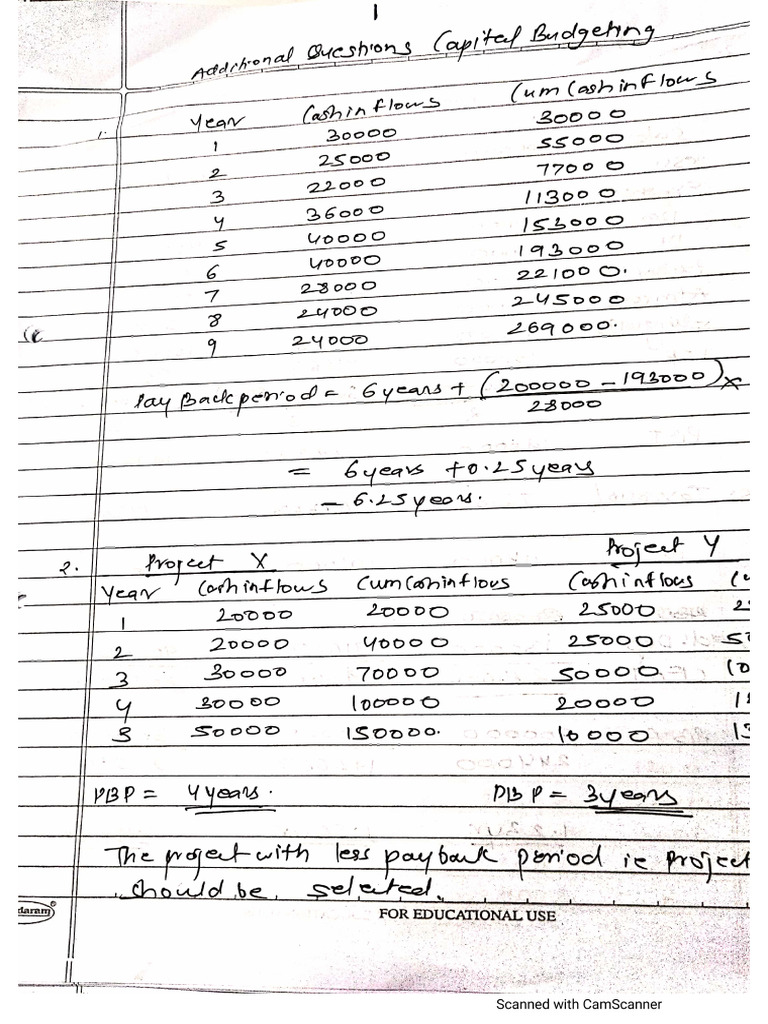 1
Additional Questions Capital Budgeting
1. Year Cash inflows Cum Cash inflows
1 30000 30000
2 25000 55000
3 22000 77000
4 36000 113000
5 40000 153000
6 40000 193000
7 28000 221000.
8 24000 245000
9 24000 269000.
Pay Back period = 6 years + (200000 - 193000) x
28000
= 6 years + 0.25 years
- 6.25 years.
2. Project X Project Y
Year Cash inflows Cum Cash inflows Cash inflows
1 20000 20000 25000
2 20000 40000 25000
3 30000 70000 50000
4 30000 100000 20000
5 50000 150000. 10000
PBP = 4 years. PBP = 3 years
The project with less payback period ie project
should be selected.
daram
FOR EDUCATIONAL USE
Scanned with CamScanner